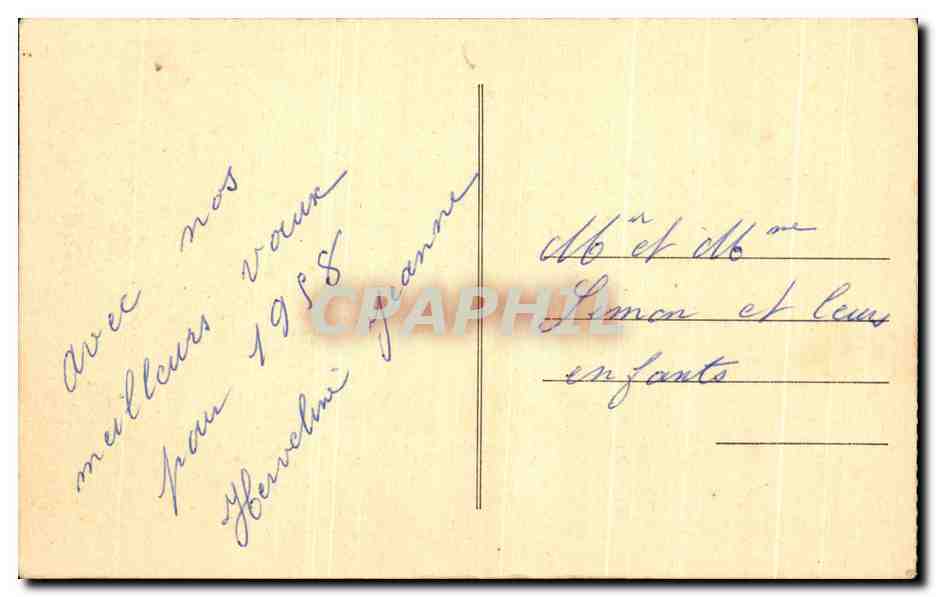 avec nos
meilleurs vœux
pour 1958
Jeanne
Mr et Mme
Simon et leurs
enfants
CPAPHIL